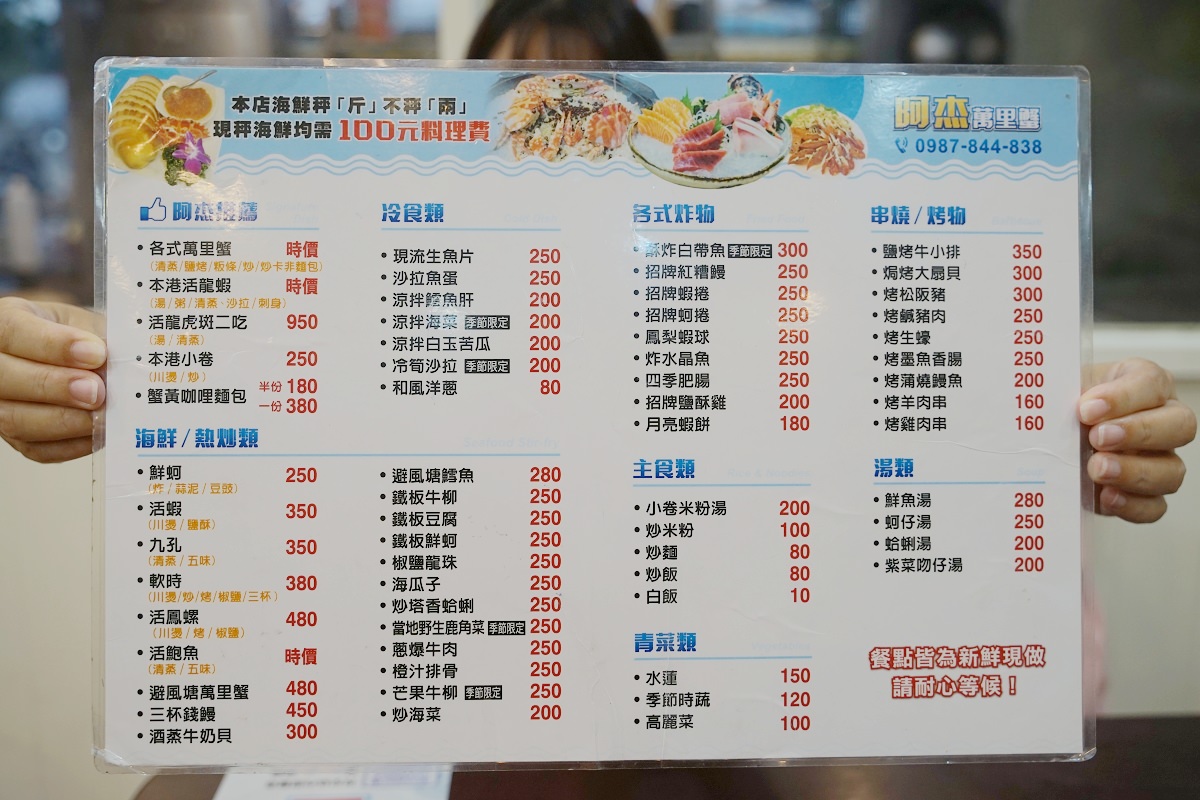 本店海鮮秤「斤」不秤「兩」
現秤海鮮均需100元料理費
阿杰萬里蟹
0987-844-838
阿杰推薦
各式萬里蟹 時價
(清蒸/鹽烤/粄條/炒/炒卡非麵包)
本港活龍蝦 時價
(湯/粥/清蒸·沙拉/刺身)
活龍虎斑二吃 950
(湯/清蒸)
本港小卷 250
(川燙/炒)
蟹黃咖哩麵包 半份 180
一份 380
冷食類
現流生魚片 250
沙拉魚蛋 250
涼拌鱈魚肝 200
涼拌海菜 季節限定 200
涼拌白玉苦瓜 200
冷筍沙拉 季節限定 200
和風洋蔥 80
海鮮/熱炒類
鮮蚵 250
(炸/蒜泥/豆豉)
活蝦 350
(川燙/鹽酥)
九孔 350
(清蒸/五味)
軟時 380
(川燙/炒/烤/椒鹽/三杯)
活鳳螺 480
(川燙/烤/椒鹽)
活鮑魚 時價
(清蒸/五味)
避風塘萬里蟹 480
三杯錢鰻 450
酒蒸牛奶貝 300
避風塘鱈魚 280
鐵板牛柳 250
鐵板豆腐 250
鐵板鮮蚵 250
椒鹽龍珠 250
海瓜子 250
炒塔香蛤蜊 250
當地野生鹿角菜 季節限定 250
蔥爆牛肉 250
橙汁排骨 250
芒果牛柳 季節限定 250
炒海菜 200
各式炸物
酥炸白帶魚 季節限定 300
招牌紅糟鰻 250
招牌蝦捲 250
招牌蚵捲 250
鳳梨蝦球 250
炸水晶魚 250
四季肥腸 250
招牌鹽酥雞 200
月亮蝦餅 180
主食類
小卷米粉湯 200
炒米粉 100
炒麵 80
炒飯 80
白飯 10
青菜類
水蓮 150
季節時蔬 120
高麗菜 100
串燒/烤物
鹽烤牛小排 350
焗烤大扇貝 300
烤松阪豬 300
烤鹹豬肉 250
烤生蠔 250
烤墨魚香腸 250
烤蒲燒鰻魚 200
烤羊肉串 160
烤雞肉串 160
湯類
鮮魚湯 280
蚵仔湯 250
蛤蜊湯 200
紫菜吻仔湯 200
餐點皆為新鮮現做
請耐心等候！